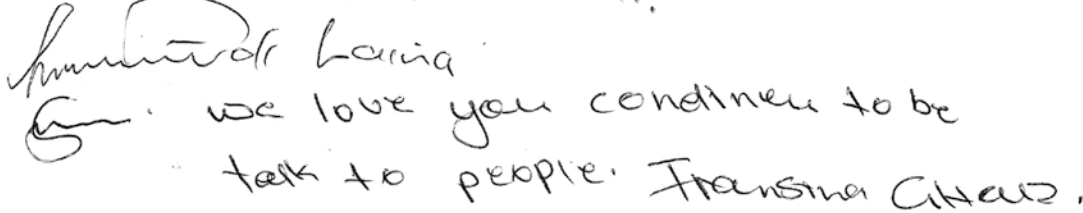 Laina
we love you condinen to be
talk to people. Fransina